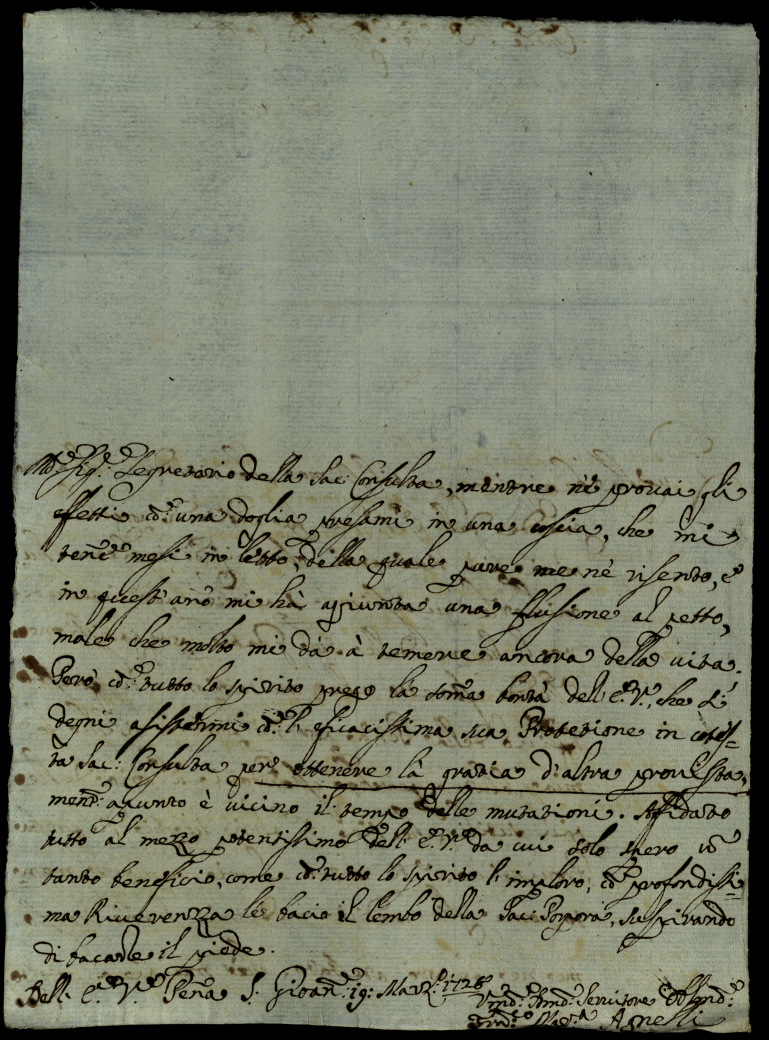 Sig.e Segretario della Sac: Consulta, mentre nè provai gli
effetti cō una doglia presami in una coscia, che mi
tenē mesi in letto, della quale pure me nè risento, e
in quest' anō mi hà agiunta una flusione al petto,
male che molto mi dà à temere ancora della vita.
Però cō tutto lo spirito prego là somā bontà dell' E. V., che si
degni asistermi cō l' eficacissima sua Protetione in cotes-
ta Sac: Consulta per ottenere là gratia d'altra provista,
mentē apunto è vicino il tempo delle mutationi. Affidato
tutto al mezzo potentissimo dell' E. V. da cui solo spero
tanto beneficio, come cō tutto lo spirito l' imploro, cō profondissi-
ma Riverenza le bacio il lembo della Sac: Porpora, suspirando
di baciarle il piede.
Dell' E. V. Penā S. Gioanī 19: Marzo 1728
Umo: Devo: Servitore Obbmo:
Franco Mara Agnelli